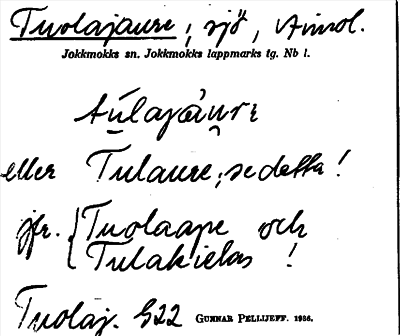 Tuolajaure; sjö, Aimol.
Jokkmokks sn. Jokkmokks lappmarks tg. Nb l.
tu̱laʒàu̯rɛ
eller Tulaure; se detta!
jfr. { Tuolaape och
Tulakielas !
Tuolaj. S22 GUNNAR PELLIJEFF. 1936.